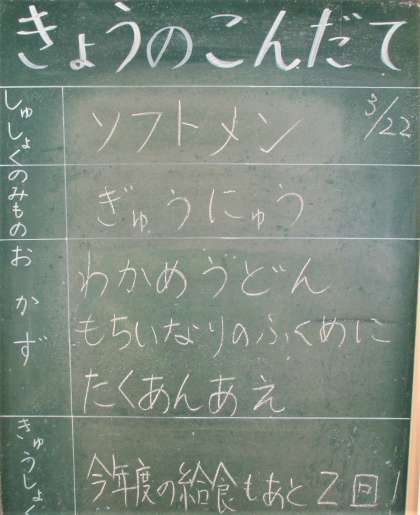 きょうのこんだて
3/22
しゅしょく
ソフトメン
のみもの
ぎゅうにゅう
おかず
わかめうどん
もちいなりのふくめに
たくあんあえ
きゅうしょく
今年度の給食もあと2回!